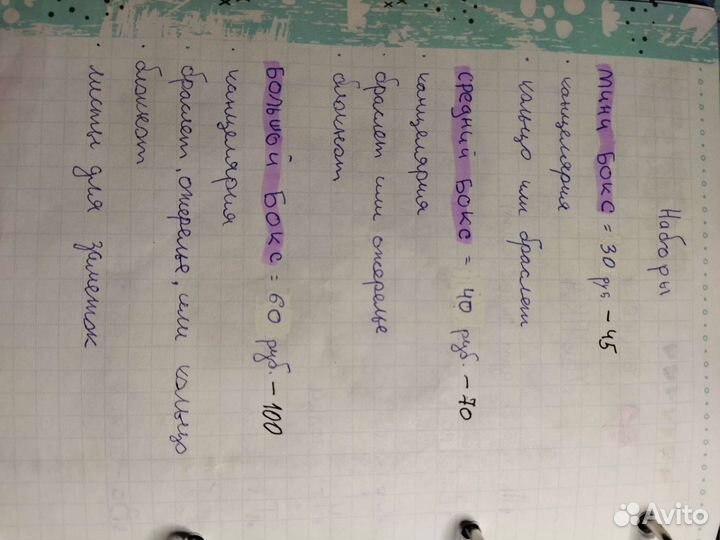 Наборы
Мини Бокс = 30 руб - 45
· канцелярия
· кольцо или браслет
Средний Бокс = 40 руб. - 70
· канцелярия
· браслет или ожерелье
· блокнот
Большой Бокс = 60 руб. - 100
· канцелярия
· браслет, ожерелье, или кольцо
· блокнот
· листы для заметок
Avito